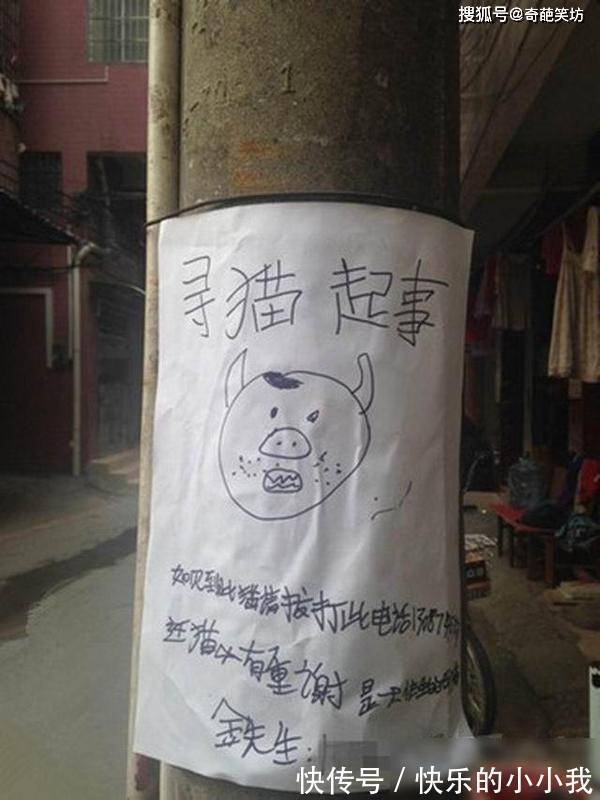 搜狐号@奇葩笑坊
寻猫 起事
如见到此猫请拨打此电话13087
还猫必有重谢 是一只
金先生:
快传号/快乐的小小我